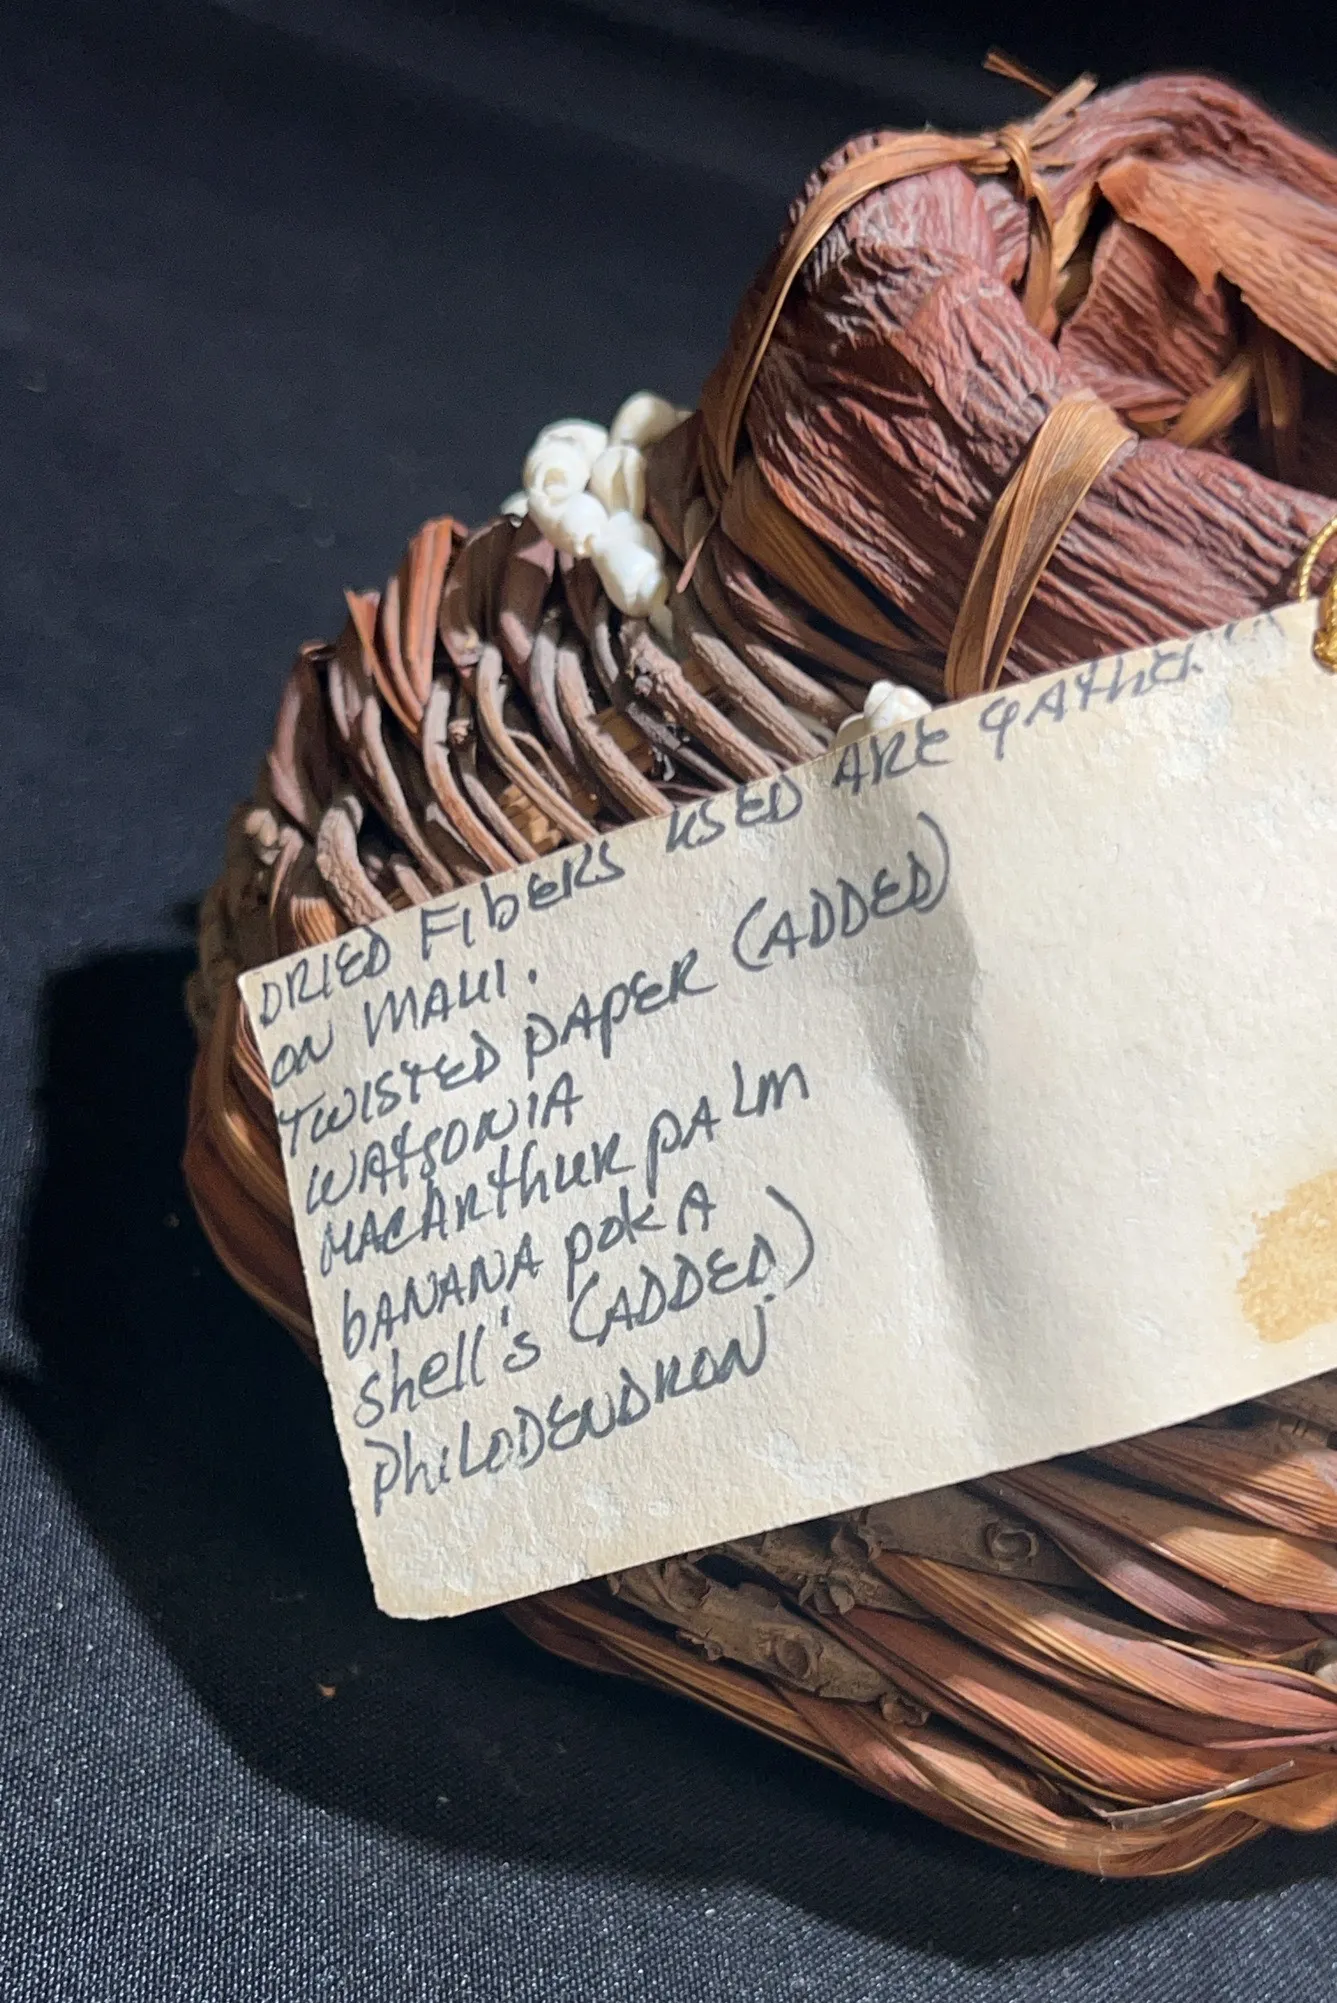 DRIED FIbERS USED ARE GATHER
ON MAUI.
TWISTED PAPER (ADDED)
WATSONIA
MACARThUR PALM
bANANA POKA
Shell's (ADDED)
PhiLODENDRON